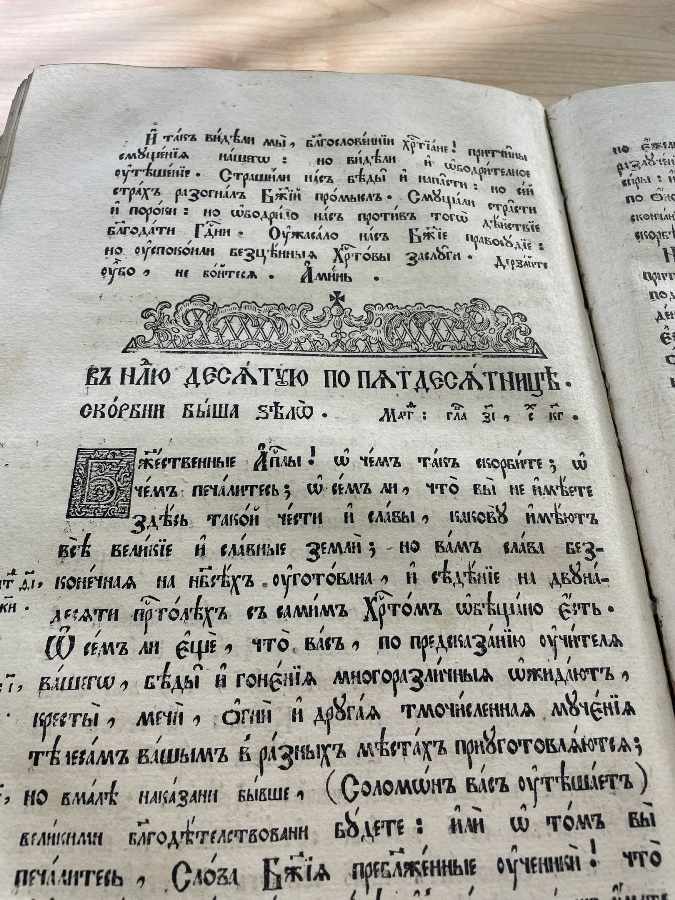 И҆ та́къ ви́дѣли мы̀, бл҃гослове́ннїи хрⷭ҇тїа́не! притчи̑ны
смꙋще́нїя на́шегѡ: но ви́дѣли и҆ ѡ҆бодри́телное
ᲂу҆тѣше́нїе. Страши́ли на́съ бѣды̀ и҆ напа̑сти: но се́й
стра́хъ разогна́лъ Бж҃їй про́мыслъ. Смꙋща́ли стра̑сти
и҆ поро́ки: но ѡ҆бодри́ло на́съ про́тивъ тогѡ̀ дѣ́йствїе
блгⷣа́ти Гдⷭ҇ни. Оу҆жаса́ло на́съ Бж҃їе правосꙋ́дїе:
но ᲂу҆споко́или безцѣ́нныя Хрⷭ҇то́вы заслꙋ́ги. Дерза́йте
ᲂу҆́бо, не бо́йтеся. А҆ми́нь.
ВЪ НЛⷣЮ ДЕСѦ́ТꙊЮ ПО ПѦТДЕСѦ́ТНИЦѢ.
СКО́РБНИ БЫ́ША ЅѢЛѠ̀. Маⷮ: гла̀ з҃і, с҃ кг҃.
Бж҃е́ственные А҆пⷭ҇лы! ѡ҆ че́мъ та́къ скорбитѐ; ѡ҆
че́мъ печа́литесь; ѡ҆ се́мъ ли, что̀ вы̀ не и҆мѣ́ете
здѣ́сь тако́й че́сти и҆ сла́вы, каковꙋ̀ и҆мѣ́ютъ
всѣ̀ вели́кїе и҆ сла́вные землѝ; но ва́мъ сла́ва без-
коне́чная на нб҃сѣ́хъ ᲂу҆гото́вана, и҆ сѣдѣ́нїе на двꙋна́-
десяти прⷭ҇то́лѣхъ съ сами́мъ Хрⷭ҇то́мъ ѡ҆бѣща́но є҆́сть.
Ѡ҆ се́мъ ли є҆щѐ, что̀ ва́съ, по предсказа́нїю ᲂу҆чи́теля
ва́шегѡ, бѣды̀ и҆ гоне́нїя многоразли́чныя ѡ҆жида́ютъ,
кресты̀, мечѝ, ѻ҆гнѝ и҆ дрꙋга́я тмочи́сленная мꙋче́нїя
тѣлеса́мъ ва́шымъ в̾ ра́зныхъ мѣ́стахъ приꙋготовля́ются;
но вма́лѣ нака́зани бы́вше, (Соломѡ́нъ ва́съ ᲂу҆тѣша́етъ)
вели́кими бл҃годѣ́телствовани бꙋ́дете: и҆лѝ ѡ҆ то́мъ вы̀
печа́литесь, Сло́ва Бж҃їя пребл҃же́нные ᲂу҆ченикѝ! что̀